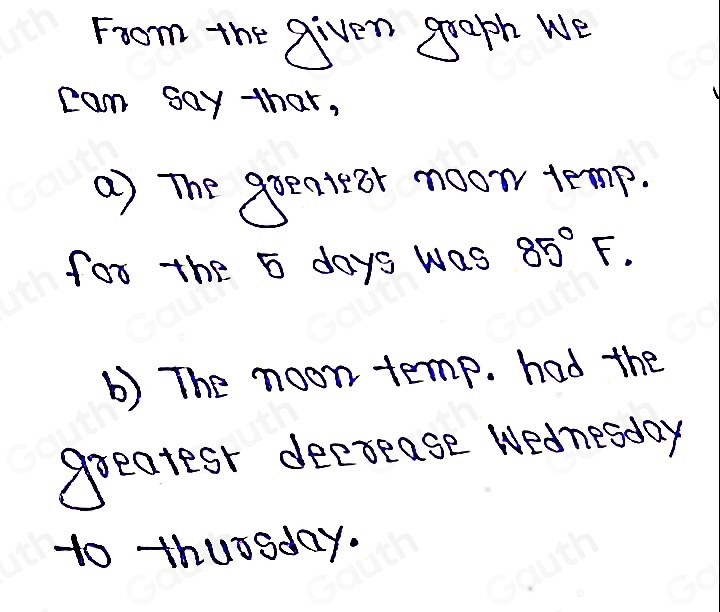 From the given graph We
can say that,
a) The greatest noon temp.
for the 5 days was 85° F.
b) The noon temp. had the
greatest decrease Wednesday
to thursday.